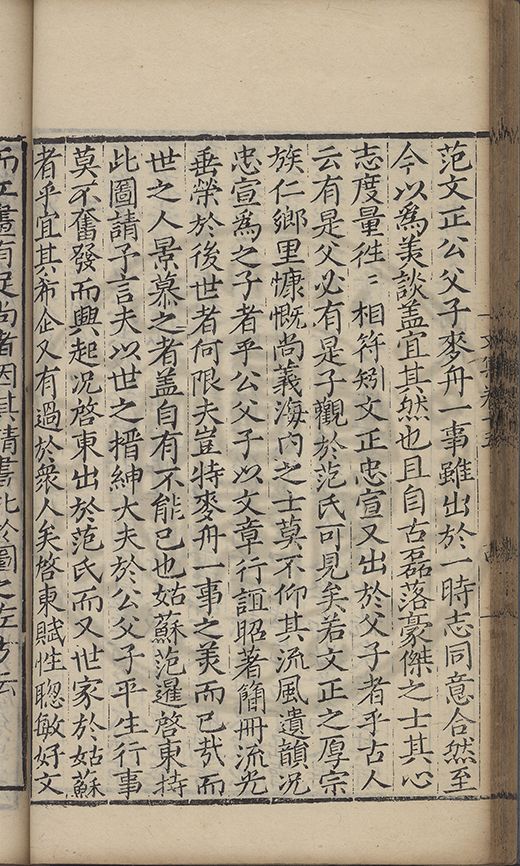 范文正公父子麥舟一事雖出於一時志同意合然至
今以爲美談盖宜其然也且自古磊落豪傑之士其心
志度量徃〻相符矧文正忠宣又出於父子者乎古人
云有是父必有是子觀於范氏可見矣若文正之厚宗
族仁鄉里慷慨尚義海内之士莫不仰其流風遺韻况
忠宣爲之子者乎公父子以文章行誼昭著簡冊流光
垂榮於後世者何限夫豈特麥舟一事之美而已哉而
世之人景慕之者盖自有不能已也姑蘇范暹啓東持
此圖請予言夫以世之搢紳大夫於公父子平生行事
莫不奮發而興起况啓東出於范氏而又世家於姑蘇
者乎宜其希企又有過於衆人矣啓東賦性聦敏好文
而工畫有足尚者因其請書此於圖之左方云